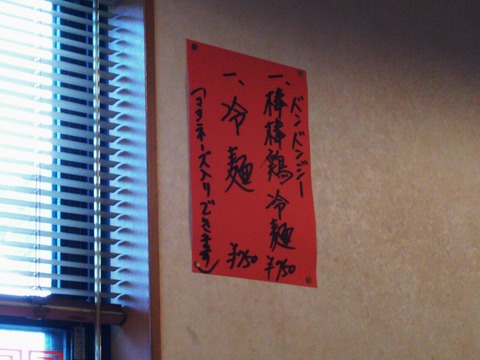 バンバンジー
一、棒棒鶏冷麺 ¥750
一、冷麺 ¥750
(マヨネーズ入りできます)